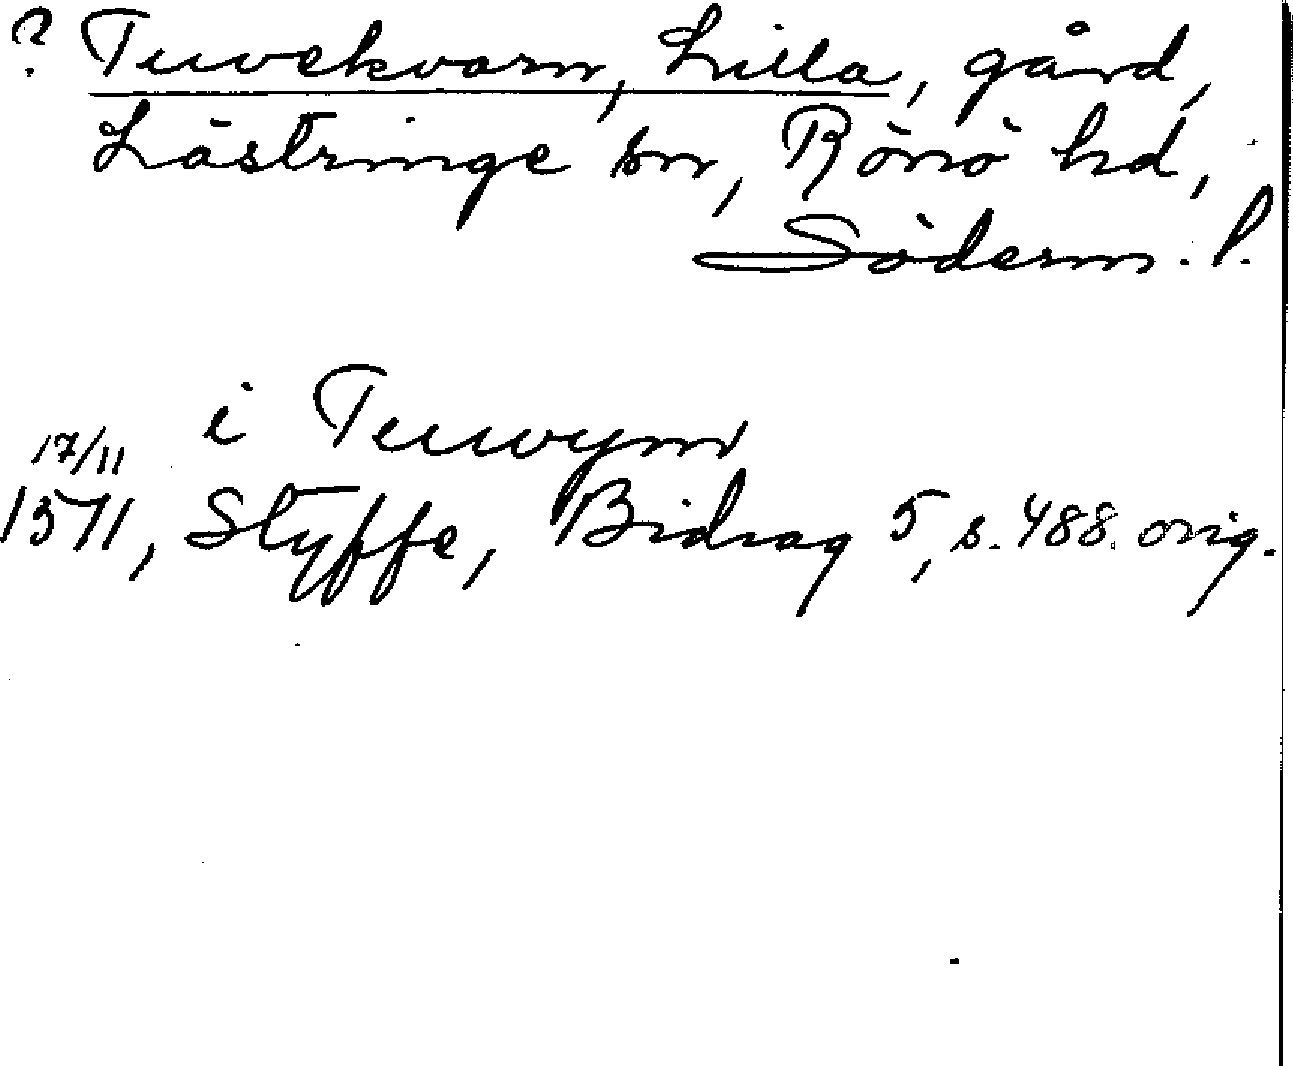 ? Tuvekvarn, Lilla, gård,
Lästringe sn, Rönö hd,
Söderm. l.
i Tuuvym
17/11
1511, Styffe, Bidrag 5, s. 488. orig.